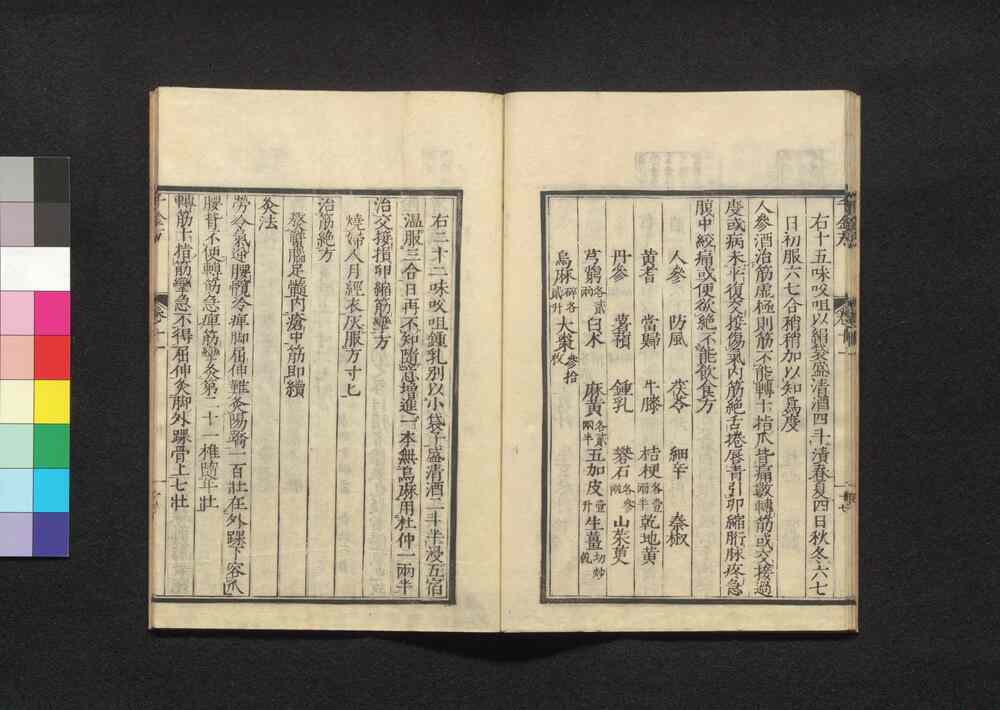 右十五味㕮咀以絹袋盛清酒四斗漬春夏四日秋冬六七
日初服六七合稍稍加以知爲度
人參酒治筋虛極則筋不能轉十指爪皆痛數轉筋或交接過
度或病未平復交接傷氣內筋絕舌捲唇青引卵縮䯒脉疼急
腹中絞痛或便欲絕不能飲食方
人參 防風 茯苓 細辛 秦椒
黃耆 當歸 牛膝 桔梗各壹兩半 乾地黃
丹參 薯蕷 鍾乳 礬石各參兩 山茱萸
芎藭各貳兩 白朮 麻黃各貳兩半 五加皮壹升 生薑切炒乾
烏麻碎各貳升 大棗參拾枚
右二十二味㕮咀鍾乳別以小袋子盛清酒二斗半浸五宿
溫服三合日再不知隨意增進一本無烏麻用杜仲一兩半
治交接損卵縮筋攣方
燒婦人月經衣灰服方寸匕
治筋絕方
熬蟹腦足髓內瘡中筋即續
灸法
勞冷氣逆腰髖冷痺脚屈伸難灸陽蹻一百壯在外踝下容爪
腰背不便轉筋急痺筋攣灸第二十一椎隨年壯
轉筋十指筋攣急不得屈伸灸脚外踝骨上七壯